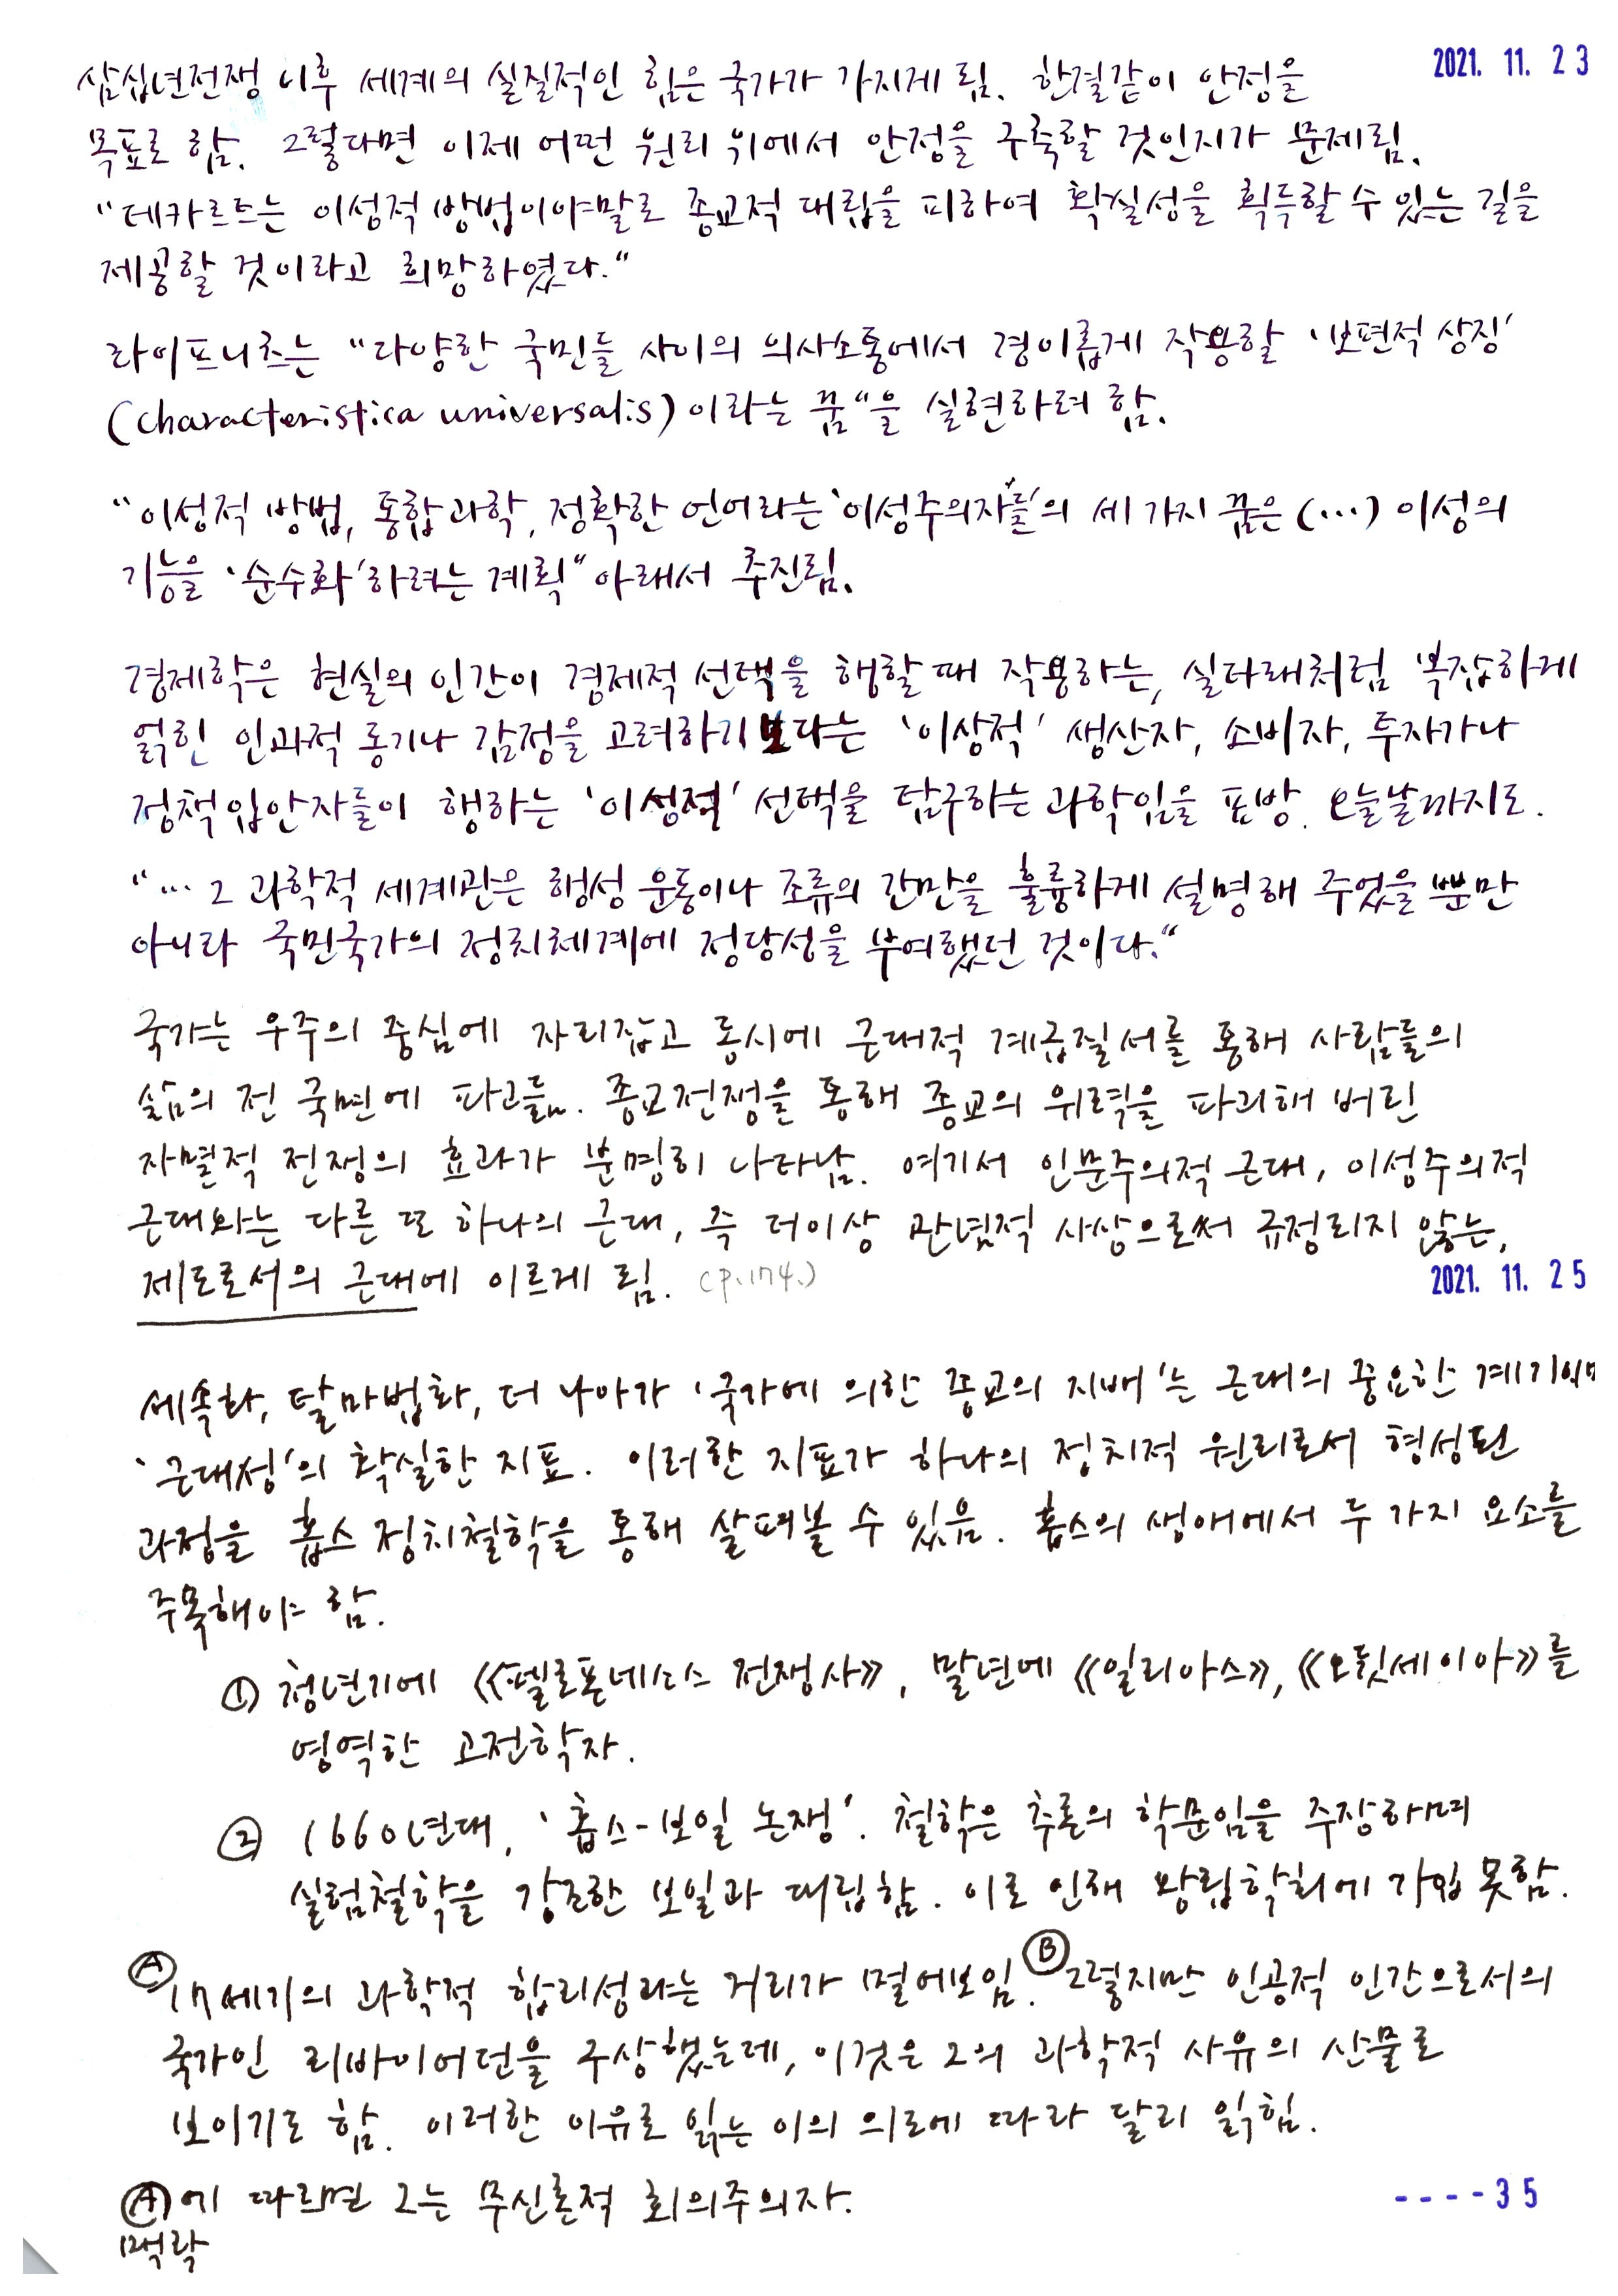 2021. 11. 23
삼십년전쟁 이후 세계의 실질적인 힘은 국가가 가지게 됨. 한결같이 안정을
목표로 함. 그렇다면 이제 어떤 원리 위에서 안정을 구축할 것인지가 문제됨.
"데카르트는 이성적 방법이야말로 종교적 대립을 피하여 확실성을 획득할 수 있는 길을
제공할 것이라고 희망하였다."
라이프니츠는 "다양한 국민들 사이의 의사소통에서 경이롭게 작용할 '보편적 상징'
(characteristica universalis)이라는 꿈"을 실현하려 함.
"이성적 방법, 통합과학, 정확한 언어라는 '이성주의자들'의 세 가지 꿈은 (…) 이성의
기능을 '순수화'하려는 계획" 아래서 추진됨.
경제학은 현실의 인간이 경제적 선택을 행할 때 작용하는, 실타래처럼 복잡하게
얽힌 인과적 동기나 감정을 고려하기보다는 '이상적' 생산자, 소비자, 투자가나
정책입안자들이 행하는 '이성적' 선택을 탐구하는 과학임을 표방. 오늘날까지도.
"… 그 과학적 세계관은 행성 운동이나 조류의 간만을 훌륭하게 설명해 주었을 뿐만
아니라 국민국가의 정치체계에 정당성을 부여했던 것이다."
국가는 우주의 중심에 자리잡고 동시에 근대적 계급질서를 통해 사람들의
삶의 전 국면에 파고듦. 종교전쟁을 통해 종교의 위력을 파괴해 버린
자멸적 전쟁의 효과가 분명히 나타남. 여기서 인문주의적 근대, 이성주의적
근대와는 다른 또 하나의 근대, 즉 더이상 관념적 사상으로써 규정되지 않는,
제도로서의 근대에 이르게 됨. (p.174.)
2021. 11. 25
세속화, 탈마법화, 더 나아가 '국가에 의한 종교의 지배'는 근대의 중요한 계기이며
'근대성'의 확실한 지표. 이러한 지표가 하나의 정치적 원리로서 형성된
과정을 홉스 정치철학을 통해 살펴볼 수 있음. 홉스의 생애에서 두 가지 요소를
주목해야 함.
① 청년기에 《펠로폰네소스 전쟁사》, 말년에 《일리아스》, 《오뒷세이아》를
영역한 고전학자.
② 1660년대, '홉스-보일 논쟁'. 철학은 추론의 학문임을 주장하며
실험철학을 강조한 보일과 대립함. 이로 인해 왕립학회에 가입 못함.
Ⓐ 17세기의 과학적 합리성과는 거리가 멀어보임. Ⓑ 그렇지만 인공적 인간으로서의
국가인 리바이어던을 구상했는데, 이것은 그의 과학적 사유의 산물로
보이기도 함. 이러한 이유로 읽는 이의 의도에 따라 달리 읽힘.
Ⓐ에 따르면 그는 무신론적 회의주의자.
맥락
----35